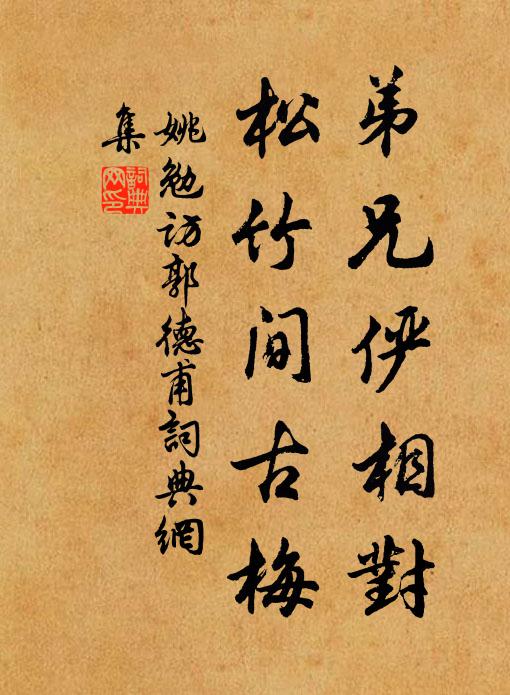 弟兄俨相對
松竹间古梅
姚勉访郭德甫詞典網
集
詞典網印